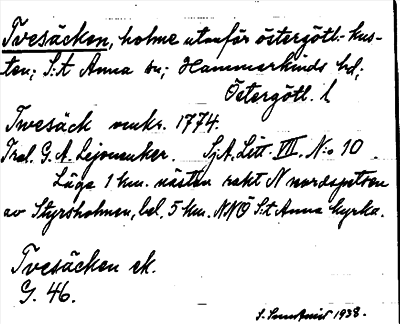 Tvesäcken, holme utanför östergötl.-kus-
ten; S:t Anna sn; Hammarkinds hd;
Östergötl. l
Twesäck omkr. 1774.
G. A. Lejonanker. SjA. Litt. VII. N:o 10
Läge 1 km. nästan rakt N nordspetsen
av Styrsholmen, bel. 5 km. NNÖ S:t Anna kyrka.
Tvesäcken ek.
G. 46.
1938.